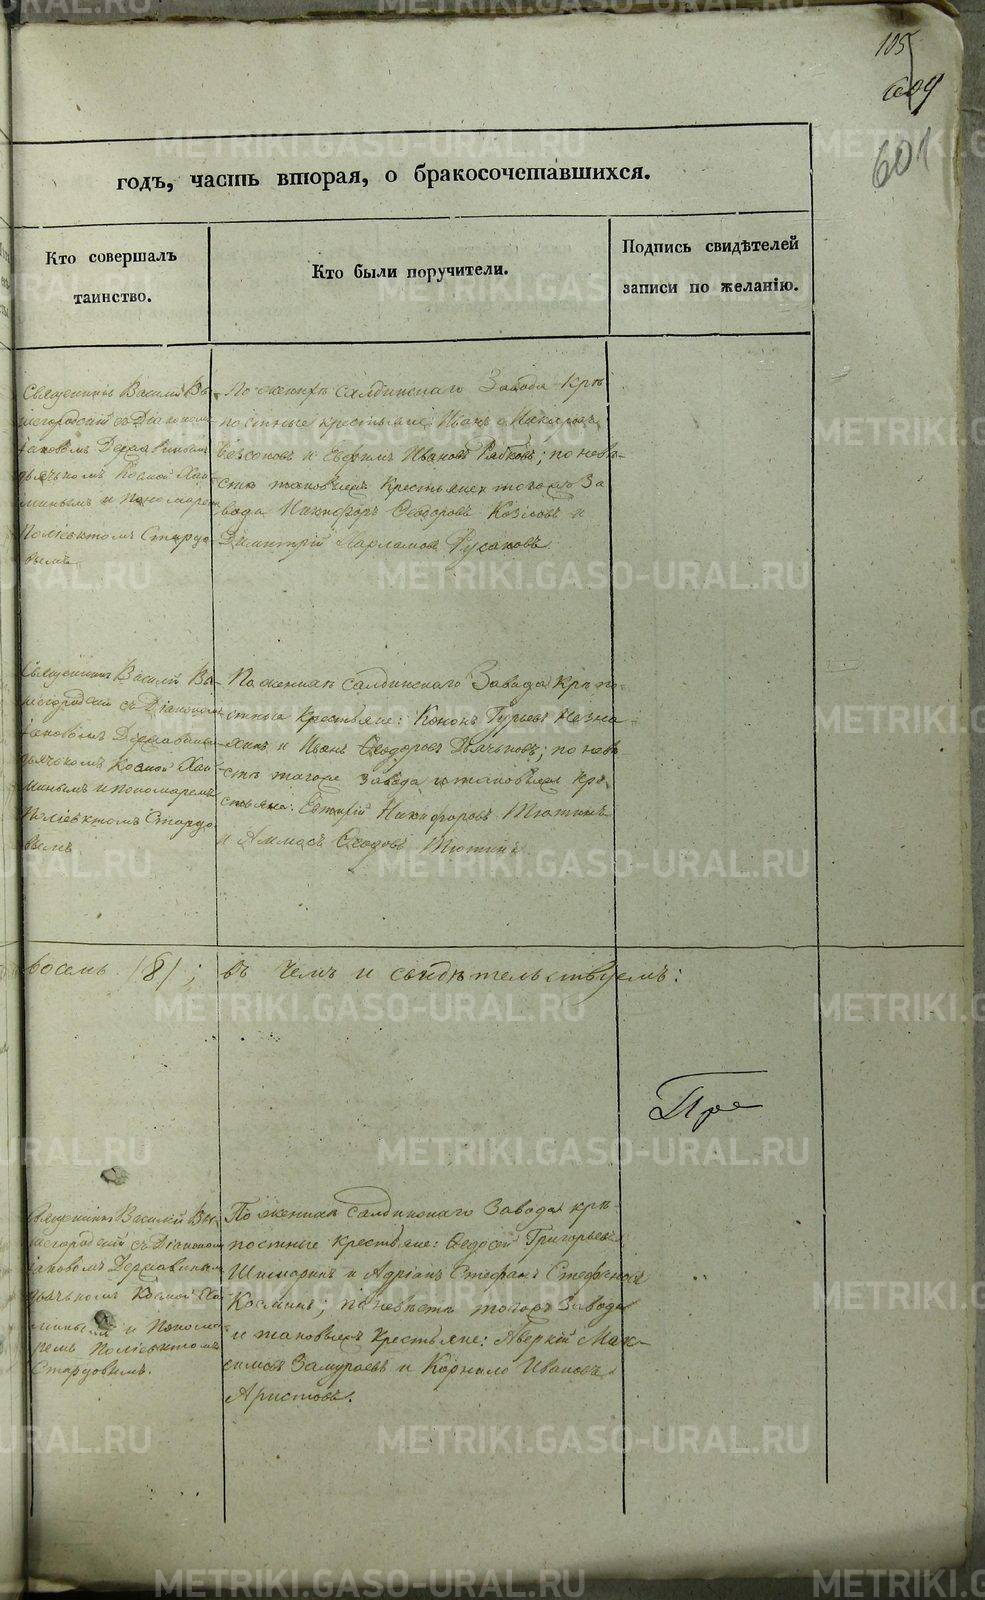 105
609
601
годъ, часть вторая, о бракосочетавшихся.
Кто совершалъ
таинство.
Кто были поручители.
Подпись свидѣтелей
записи по желанію.
Священникъ Василій Вы-
шегородскій съ Діакономъ
Іаковомъ Державинымъ
дьячкомъ Космой Ха-
минымъ и пономаремъ
Поліевктомъ Стардо
вымъ
По женихѣ Салдинскаго Завода крѣ
постные крестьяне: Иванъ
и Ефимъ Ивановъ Рябковъ; по невѣ-
стѣ таковыежъ Крестьяне тогожъ За
вода Никифоръ Ѳеодоровъ Козловъ и
Димитрій Варламовъ Русаковъ.
Священникъ Василій Вы-
шегородскій съ Діакономъ
Іаковомъ Державинымъ
дьячкомъ Космой Ха-
минымъ и пономаремъ
Поліевктомъ Стардо
вымъ
По женихѣ Салдинскаго Завода крѣпо-
стные крестьяне: Кононъ Гурьевъ
и Иванъ Ѳеодоровъ Дьячковъ; по невѣ
стѣ тогоже завода и таковыежъ кре-
стьяне: Евтихій Никифоровъ Тютинъ
и Ѳеодовъ Тютинъ
восемь /8/; въ чемъ и свидѣтельствуемъ:
Пре
Священникъ Василій Вы-
шегородскій съ Діакономъ
Іаковомъ Державинымъ
дьячкомъ Космой Ха-
минымъ и Понома-
ремъ Поліевктомъ
Стардовымъ.
По женихѣ Салдинскаго Завода крѣ-
постные крестьяне: Ѳедосей Григорьевъ
Шипаринъ и Адріанъ Стефановъ
Косминъ; по невѣстѣ тогожъ Завода
и таковыежъ крестьяне: Аверкій Мак-
симовъ Замураевъ и Корнило Ивановъ
Аристовъ.
METRIKI.GASO-URAL.RU